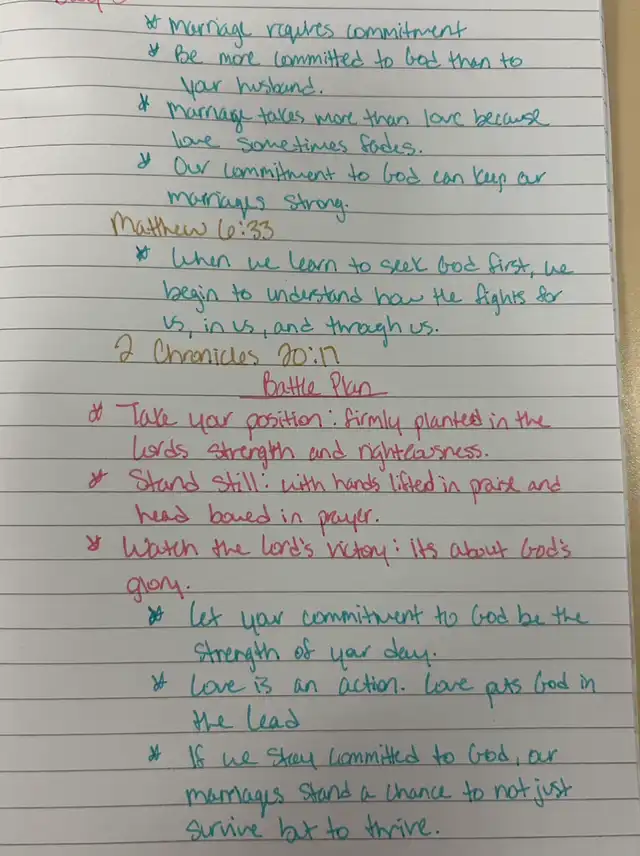 * Marriage requires commitment
* Be more committed to God than to
your husband.
* Marriage takes more than love because
love sometimes fades.
* Our commitment to God can keep our
marriages strong.
Matthew 6:33
* When we learn to seek God first, we
begin to understand how He fights for
us, in us, and through us.
2 Chronicles 20:17
Battle Plan
* Take your position: firmly planted in the
Lords strength and righteousness.
* Stand still: with hands lifted in praise and
head bowed in prayer.
* Watch the Lord's victory: its about God's
glory.
* Let your commitment to God be the
strength of your day.
* Love is an action. Love puts God in
the lead
* If we stay committed to God, our
marriages stand a chance to not just
survive but to thrive.